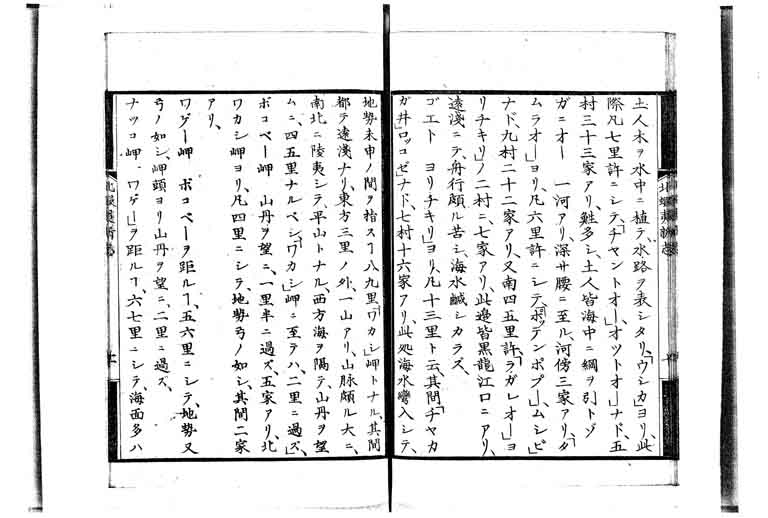 土人木ヲ水中ニ植テ、水路ヲ表シタリ、「ウシカ」ヨリ、此
際凡七里許ニシテ、「チヤントオー」、オツトオー」ナド、五
村三十三家アリ、鮏多シ、土人皆海中ニ網ヲ引トゾ
ガニオー 一河アリ、深サ腰ニ至ル、河傍三家アリ、「タ
ムラオー」ヨリ、凡六里許ニシテ、「ポツテンポプー」、ムシビ」
ナド、九村二十二家アリ、又南四五里許、「ラガレオー」ヨ
リチキリ」ノ二村ニ、七家アリ、此邊皆黒龍江口ニアリ、
遠淺ニテ、舟行頗ル苦シ、海水鹹シカラズ、
ゴエト ヨリチキリ」ヨリ、凡十三里ト云、其間「チヤカ
ガ井」ロツコゼ」ナド、七村十六家アリ、此処海水彎入シテ、
地勢未申ノ間ヲ指スヿ八九里、「ワカシ」岬トナル、其間
都テ遠淺ナリ、東方三里ノ外、一山アリ、山脉頗ル大ニ、
南北ニ陵夷シテ、平山トナル、西方海ヲ隔テ、山丹ヲ望
ムニ、四五里ナルベシ、「ワカシ」岬ニ至テハ、二里ニ過ズ、
ボコベー岬 山丹ヲ望ニ、一里半ニ過ズ、五家アリ、北
ワカシ岬ヨリ、凡四里ニシテ、地勢弓ノ如シ、其間二家
アリ、
ワゲー岬 ボコベーヲ距ルヿ、五六里ニシテ、地勢又
弓ノ如シ、岬頭ヨリ山丹ヲ望ニ、二里ニ過ズ、
ナツコ岬 ワゲー」ヲ距ルヿ、六七里ニシテ、海面多ハ